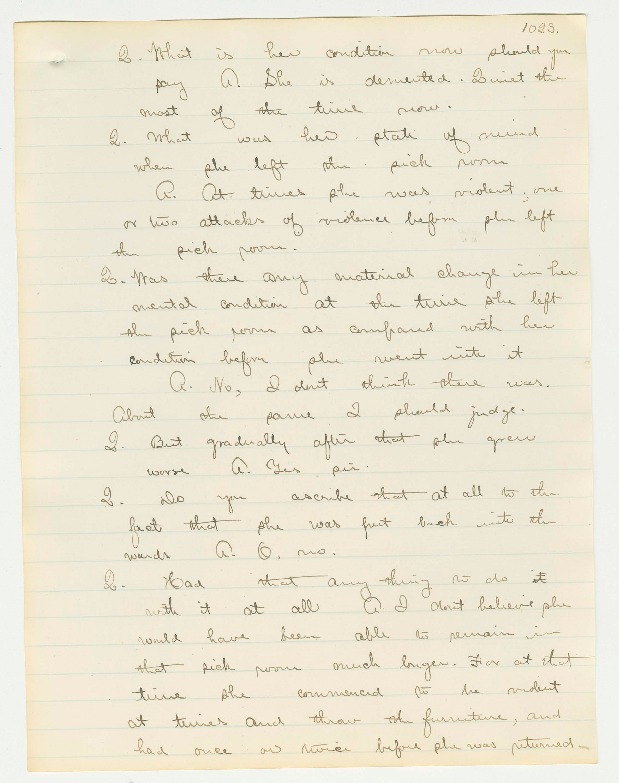 1023.
Q. What is her condition now should you
say A. She is demented. Quiet the
most of the time now.
Q. What was her state of mind
when she left the sick room
A. At times she was violent, one
or two attacks of violence before she left
the sick room.
Q. Was there any material change in her
mental condition at the time she left
the sick room as compared with her
condition before she went into it
A. No, I dont think there was.
About the same I should judge.
Q. But gradually after that she grew
worse A. Yes sir.
Q. Do you ascribe that at all to the
fact that she was put back into the
wards A. O. no.
Q. Had that any thing to do it
with it at all A I dont believe she
would have been able to remain in
that sick room much longer. For at that
time she commenced to be violent
at times and throw the furniture, and
had once or twice before she was returned